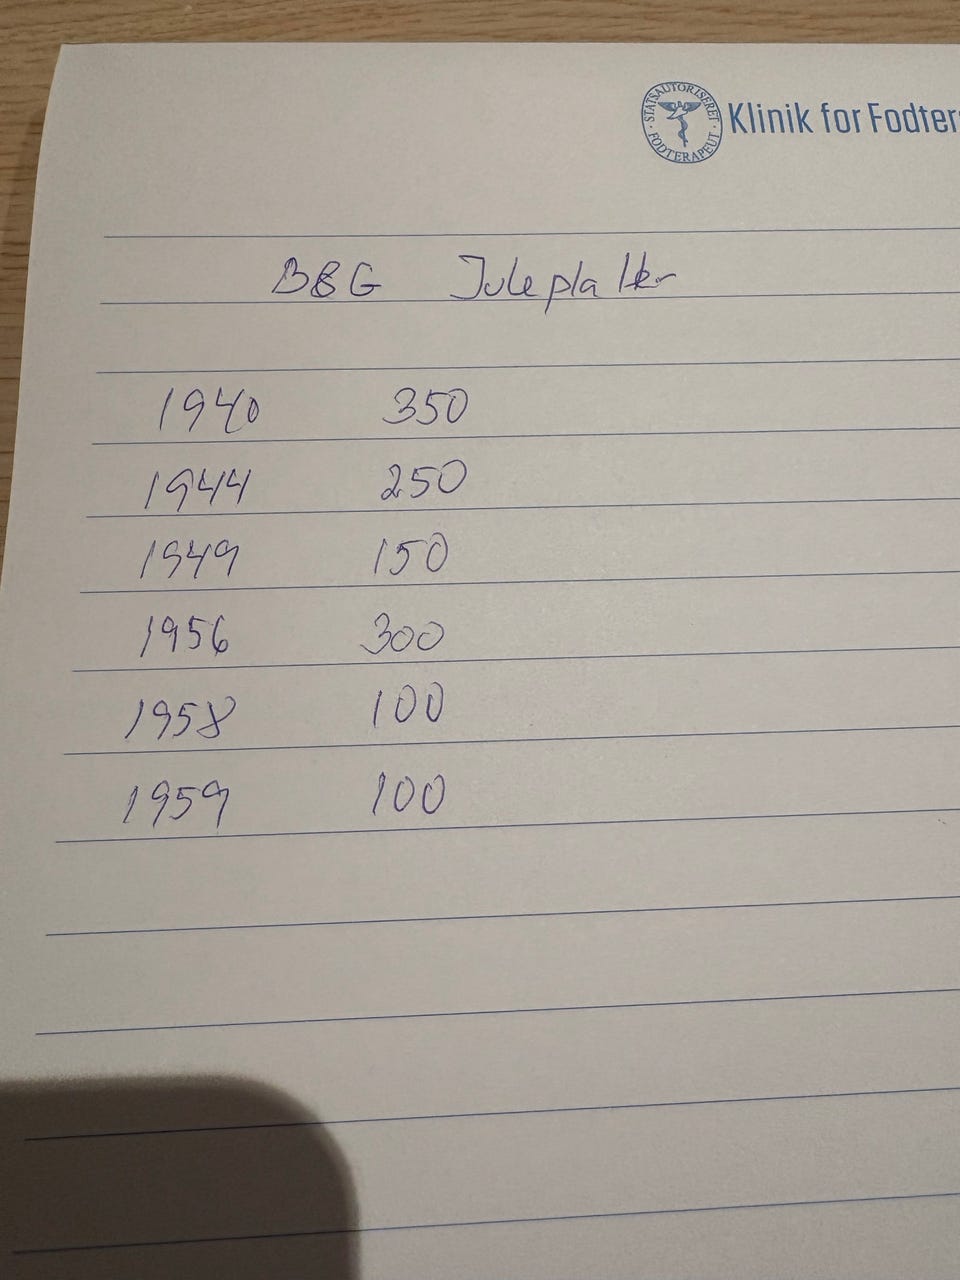 STATSAUTORISERET FODTERAPEUT
Klinik for Fodter
B&G Juleplatter
1940 350
1944 250
1949 150
1956 300
1958 100
1959 100